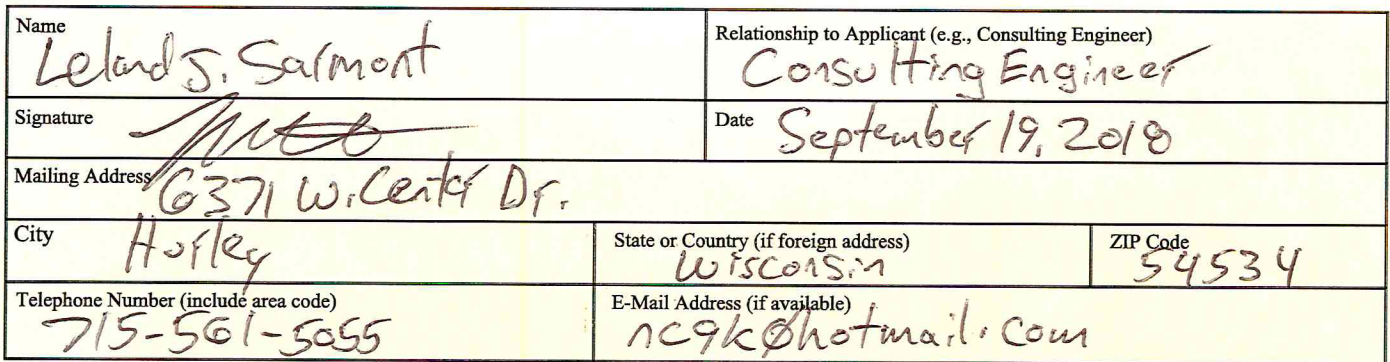 Name
Leland J. Sarmont
Relationship to Applicant (e.g., Consulting Engineer)
Consulting Engineer
Signature
Date
September 19, 2018
Mailing Address
6371 W. Center Dr.
City
Hurley
State or Country (if foreign address)
Wisconsin
ZIP Code
54534
Telephone Number (include area code)
715-561-5055
E-Mail Address (if available)
nc9k@hotmail.com